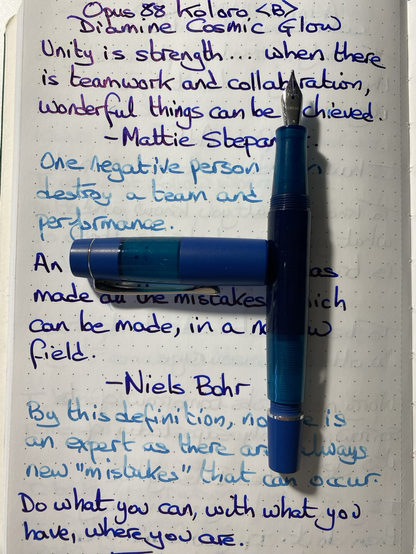 Opus 88 Koloro <B>
Diamine Cosmic Glow
Unity is strength... when there
is teamwork and collaboration,
wonderful things can be achieved.
-Mattie Stepan
One negative person
destroy a team and
performance.
An as
made all the mistakes which
can be made, in a
field.
-Niels Bohr
By this definition, no is
an expert as there are always
new "mistakes" that can occur.
Do what you can, with what you
have, where you are.